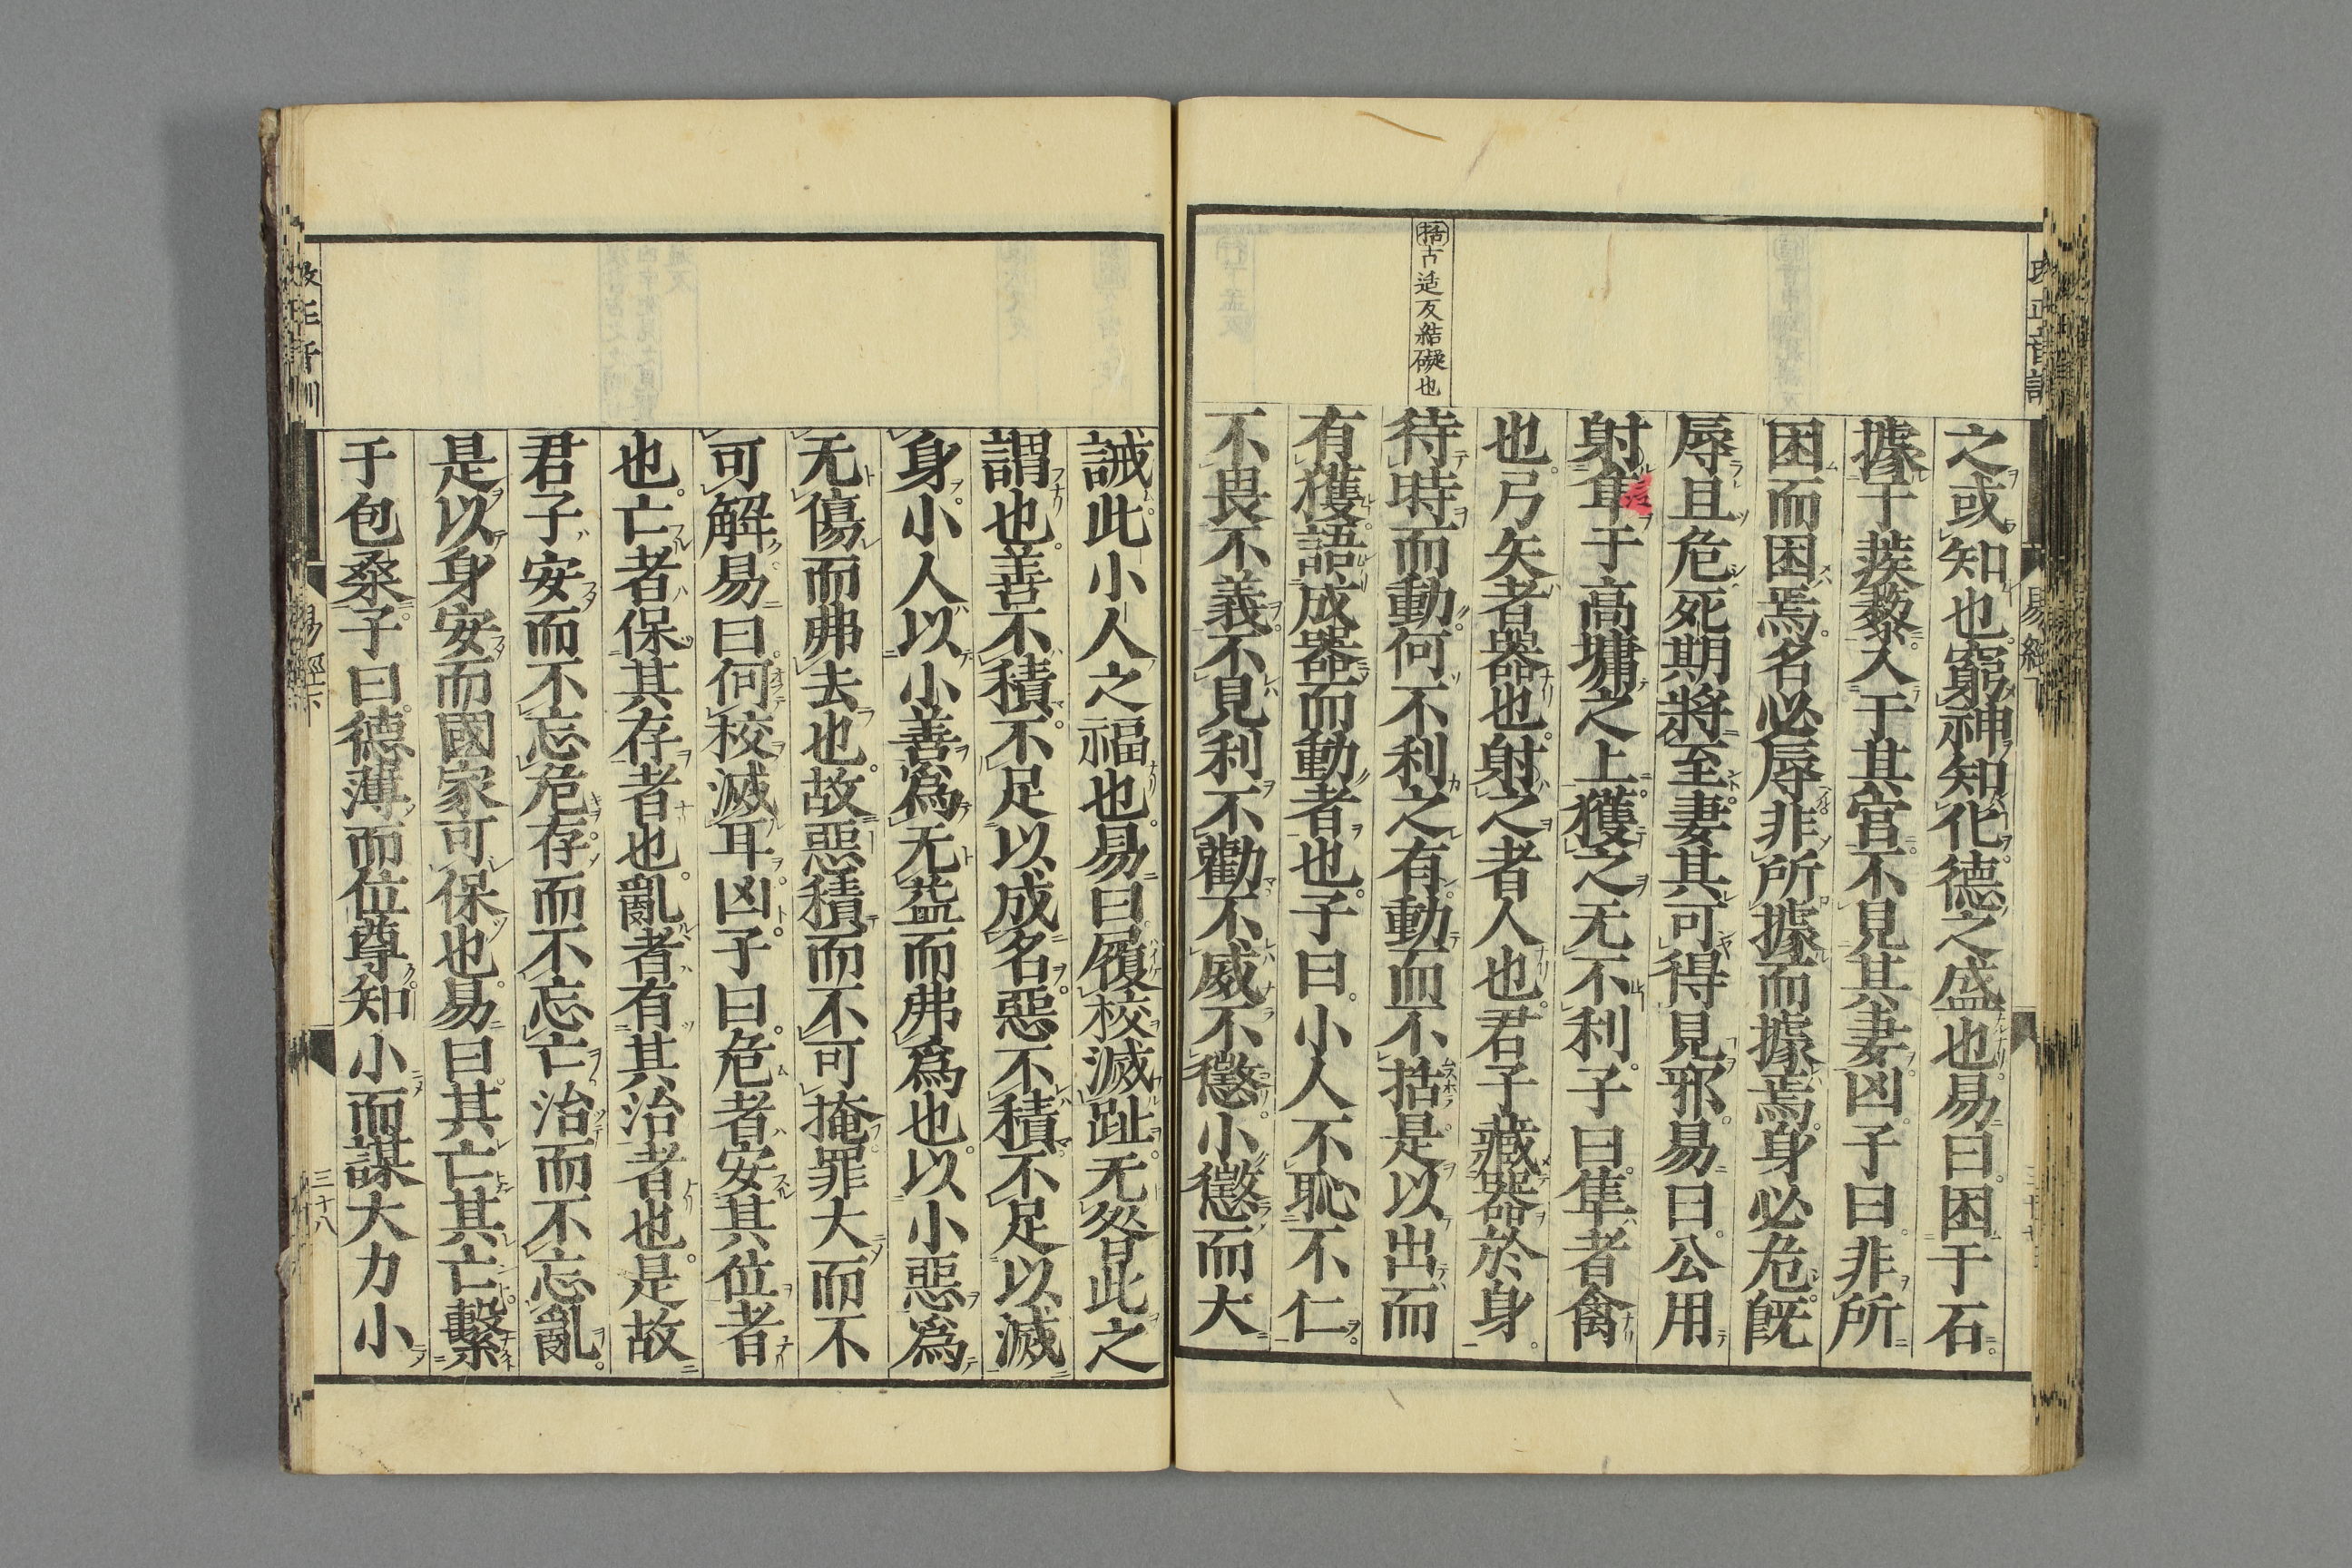 括古适反結礙也
之或知也窮神知化德之盛也易曰困于石
據于蒺藜入于其宮不見其妻凶子曰非所
困而困焉名必辱非所據而據焉身必危旣
辱且危死期將至妻其可得見邪易曰公用
射隼于高墉之上獲之无不利子曰隼者禽
也弓矢者器也射之者人也君子藏器於身
待時而動何不利之有動而不括是以出而
有獲語成器而動者也子曰小人不恥不仁
不畏不義不見利不勸不威不懲小懲而大
誡此小人之福也易曰履校滅趾无咎此之
謂也善不積不足以成名惡不積不足以滅
身小人以小善爲无益而弗爲也以小惡爲
无傷而弗去也故惡積而不可掩罪大而不
可解易曰何校滅耳凶子曰危者安其位者
也亡者保其存者也亂者有其治者也是故
君子安而不忘危存而不忘亡治而不忘亂
是以身安而國家可保也易曰其亡其亡繫
于包桑子曰德薄而位尊知小而謀大力小
易經下
三十八